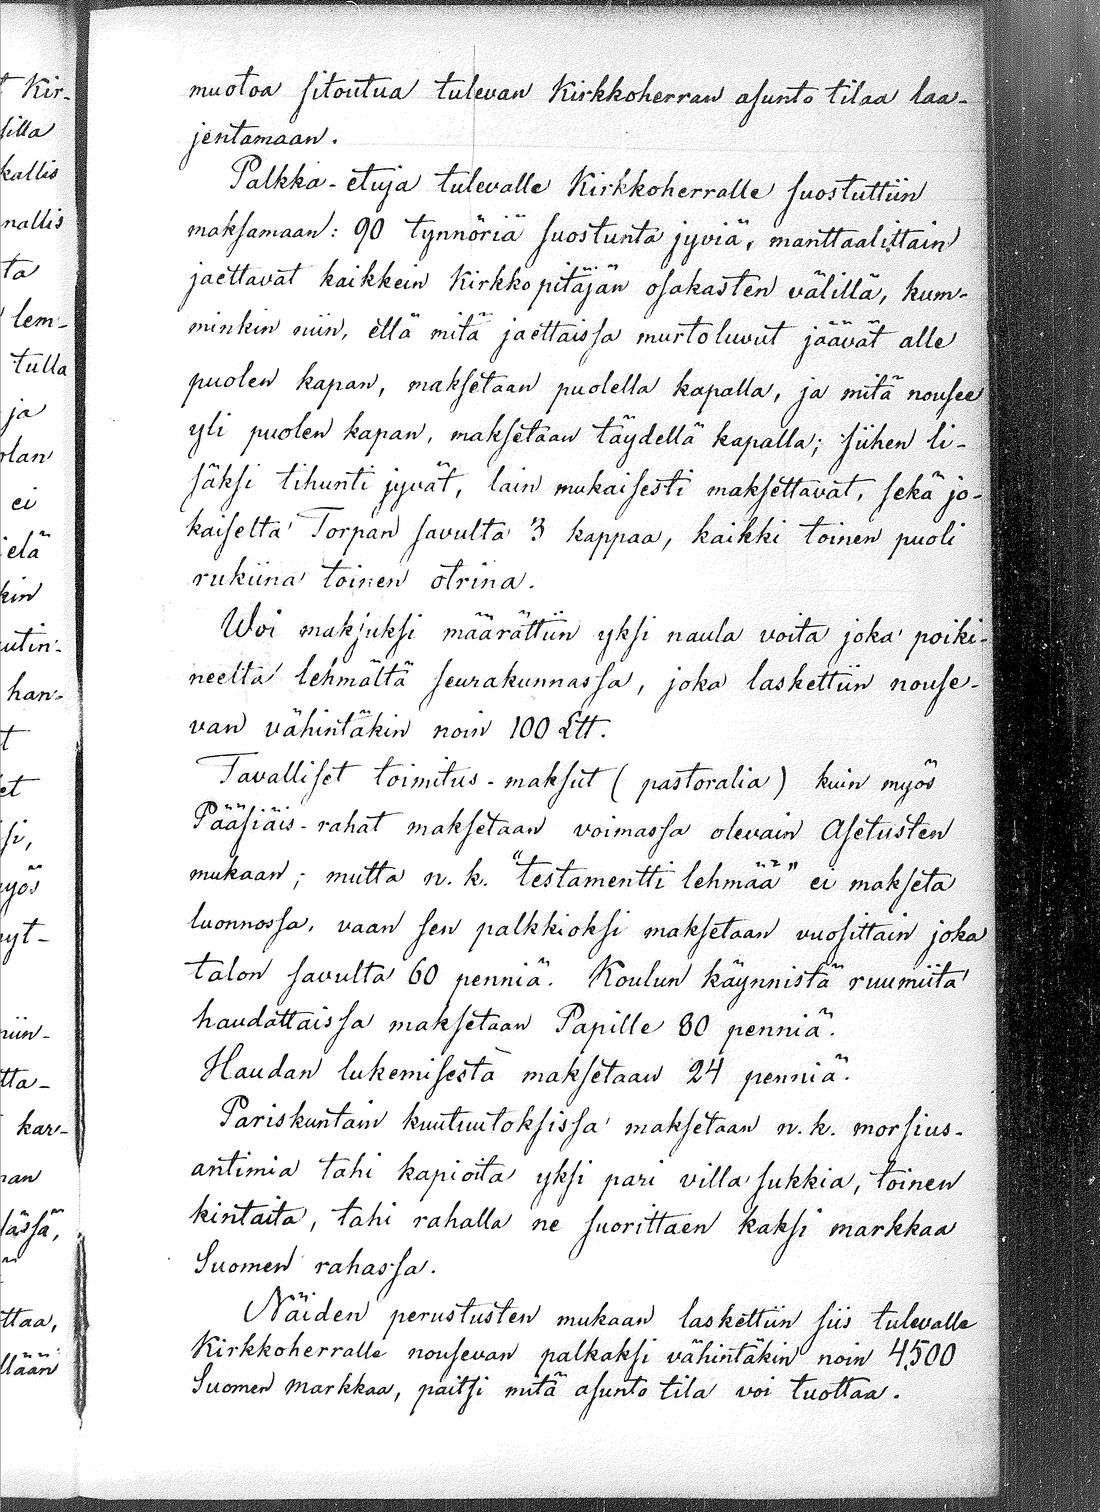 muotoa sitoutua tulevan Kirkkoherran asunto tilaa laa-
jentamaan.
Palkka-etuja tulevalle Kirkkoherralle suostuttiin
maksamaan: 90 tynnöriä suostunta jyviä, manttaalittain
jaettavat kaikkein Kirkkopitäjän osakasten välillä, kum-
minkin niin, että mitä jaettaissa murtoluvut jäävät alle
puolen kapan, maksetaan puolella kapalla, ja mitä nousee
yli puolen kapan, maksetaan täydellä kapalla; siihen li-
säksi tihunti jyvät, lain mukaisesti maksettavat, sekä jo-
kaiselta Torpan savulta 3 kappaa, kaikki toinen puoli
rukiina toinen otrina.
Woi maksuksi määrättiin yksi naula voita joka poiki-
neelta lehmältä seurakunnassa, joka laskettiin nouse-
van vähintäkin noin 100 Ltt.
Tavalliset toimitus-maksut (pastoralia) kuin myös
Pääsiäis-rahat maksetaan voimassa olevain Asetusten
mukaan; mutta n.k. "testamentti lehmää" ei makseta
luonnossa, vaan sen palkkioksi maksetaan vuosittain joka
talon savulta 60 penniä. Koulun käynnistä ruumiita
haudattaissa maksetaan Papille 80 penniä.
Haudan lukemisesta maksetaan 24 penniä.
Pariskuntain kuuluutoksissa maksetaan n.k. morsius-
antimia tahi kapioita yksi pari villa sukkia, toinen
kintaita, tahi rahalla ne suorittaen kaksi markkaa
Suomen rahassa.
Näiden perustusten mukaan laskettiin siis tulevalle
Kirkkoherralle nousevan palkaksi vähintäkin noin 4,500
Suomen markkaa, paitsi mitä asunto tila voi tuottaa.